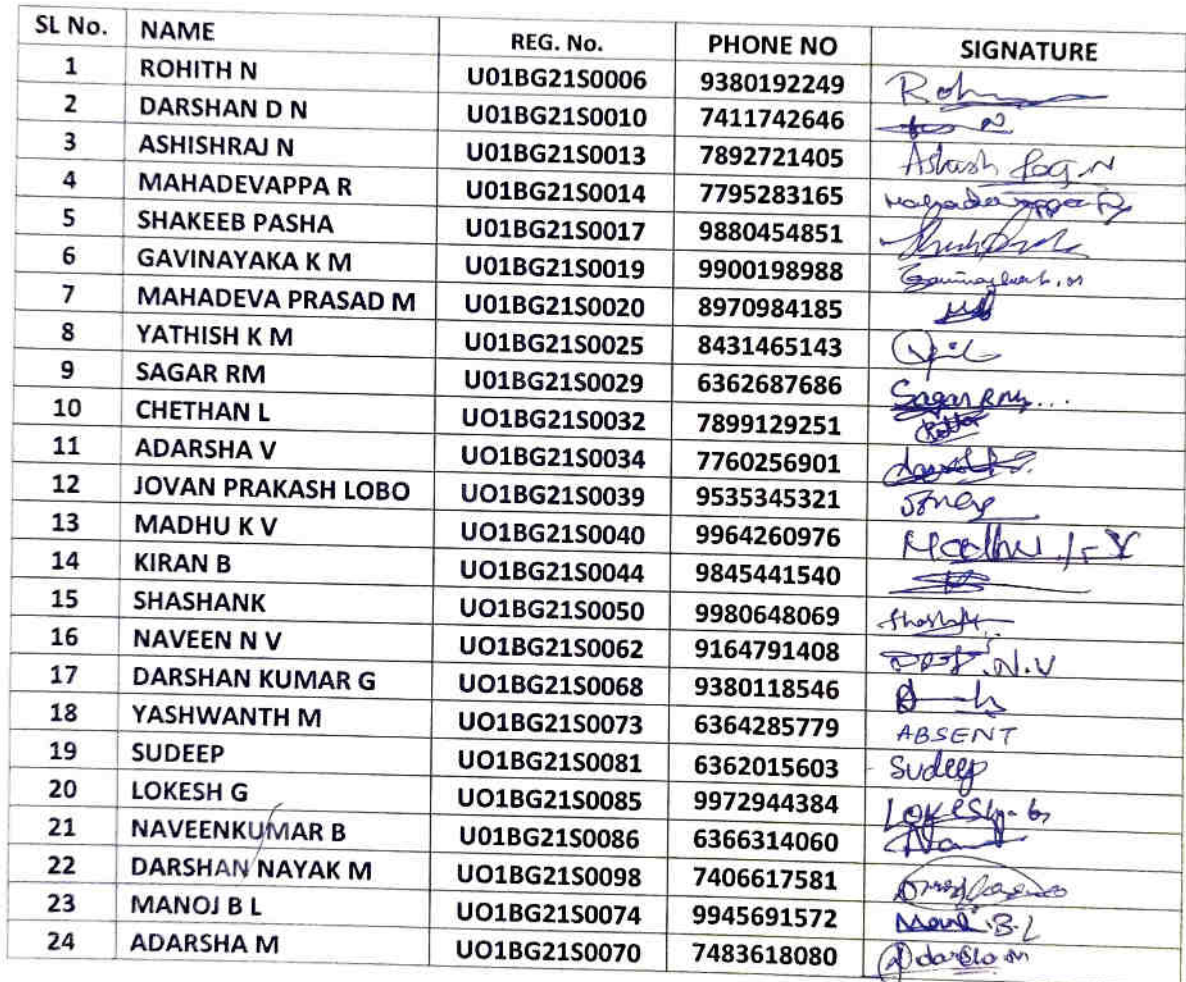 SL No. NAME REG. No. PHONE NO SIGNATURE
1 ROHITH N U01BG21S0006 9380192249
2 DARSHAN D N U01BG21S0010 7411742646
3 ASHISHRAJ N U01BG21S0013 7892721405
4 MAHADEVAPPA R U01BG21S0014 7795283165
5 SHAKEEB PASHA U01BG21S0017 9880454851
6 GAVINAYAKA K M U01BG21S0019 9900198988
7 MAHADEVA PRASAD M U01BG21S0020 8970984185
8 YATHISH K M U01BG21S0025 8431465143
9 SAGAR RM U01BG21S0029 6362687686
10 CHETHAN L UO1BG21S0032 7899129251
11 ADARSHA V UO1BG21S0034 7760256901
12 JOVAN PRAKASH LOBO UO1BG21S0039 9535345321
13 MADHU K V UO1BG21S0040 9964260976
14 KIRAN B UO1BG21S0044 9845441540
15 SHASHANK UO1BG21S0050 9980648069
16 NAVEEN N V UO1BG21S0062 9164791408 N.V
17 DARSHAN KUMAR G UO1BG21S0068 9380118546
18 YASHWANTH M UO1BG21S0073 6364285779 ABSENT
19 SUDEEP UO1BG21S0081 6362015603 Sudeep
20 LOKESH G UO1BG21S0085 9972944384
21 NAVEENKUMAR B U01BG21S0086 6366314060
22 DARSHAN NAYAK M UO1BG21S0098 7406617581
23 MANOJ B L UO1BG21S0074 9945691572 B.L
24 ADARSHA M UO1BG21S0070 7483618080